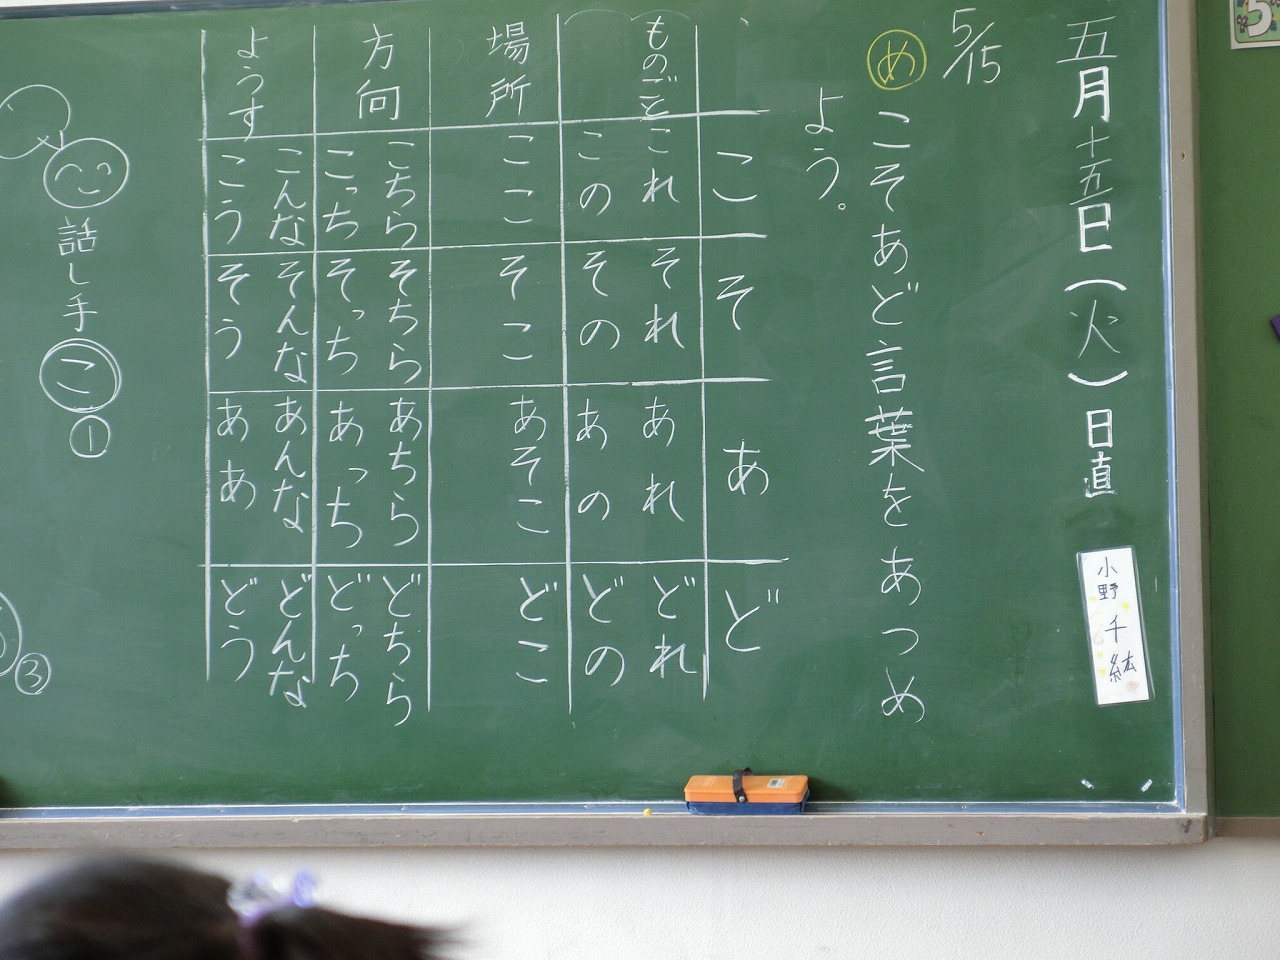 五月十五日(火)日直
小野千紘
5/15
め こそあど言葉をあつめ
よう。
こ そ あ ど
ものごと これ それ あれ どれ
この その あの どの
場所 ここ そこ あそこ どこ
方向 こちら そちら あちら どちら
こっち そっち あっち どっち
ようす こんな そんな あんな どんな
こう そう ああ どう
話し手 こ ①
③
5